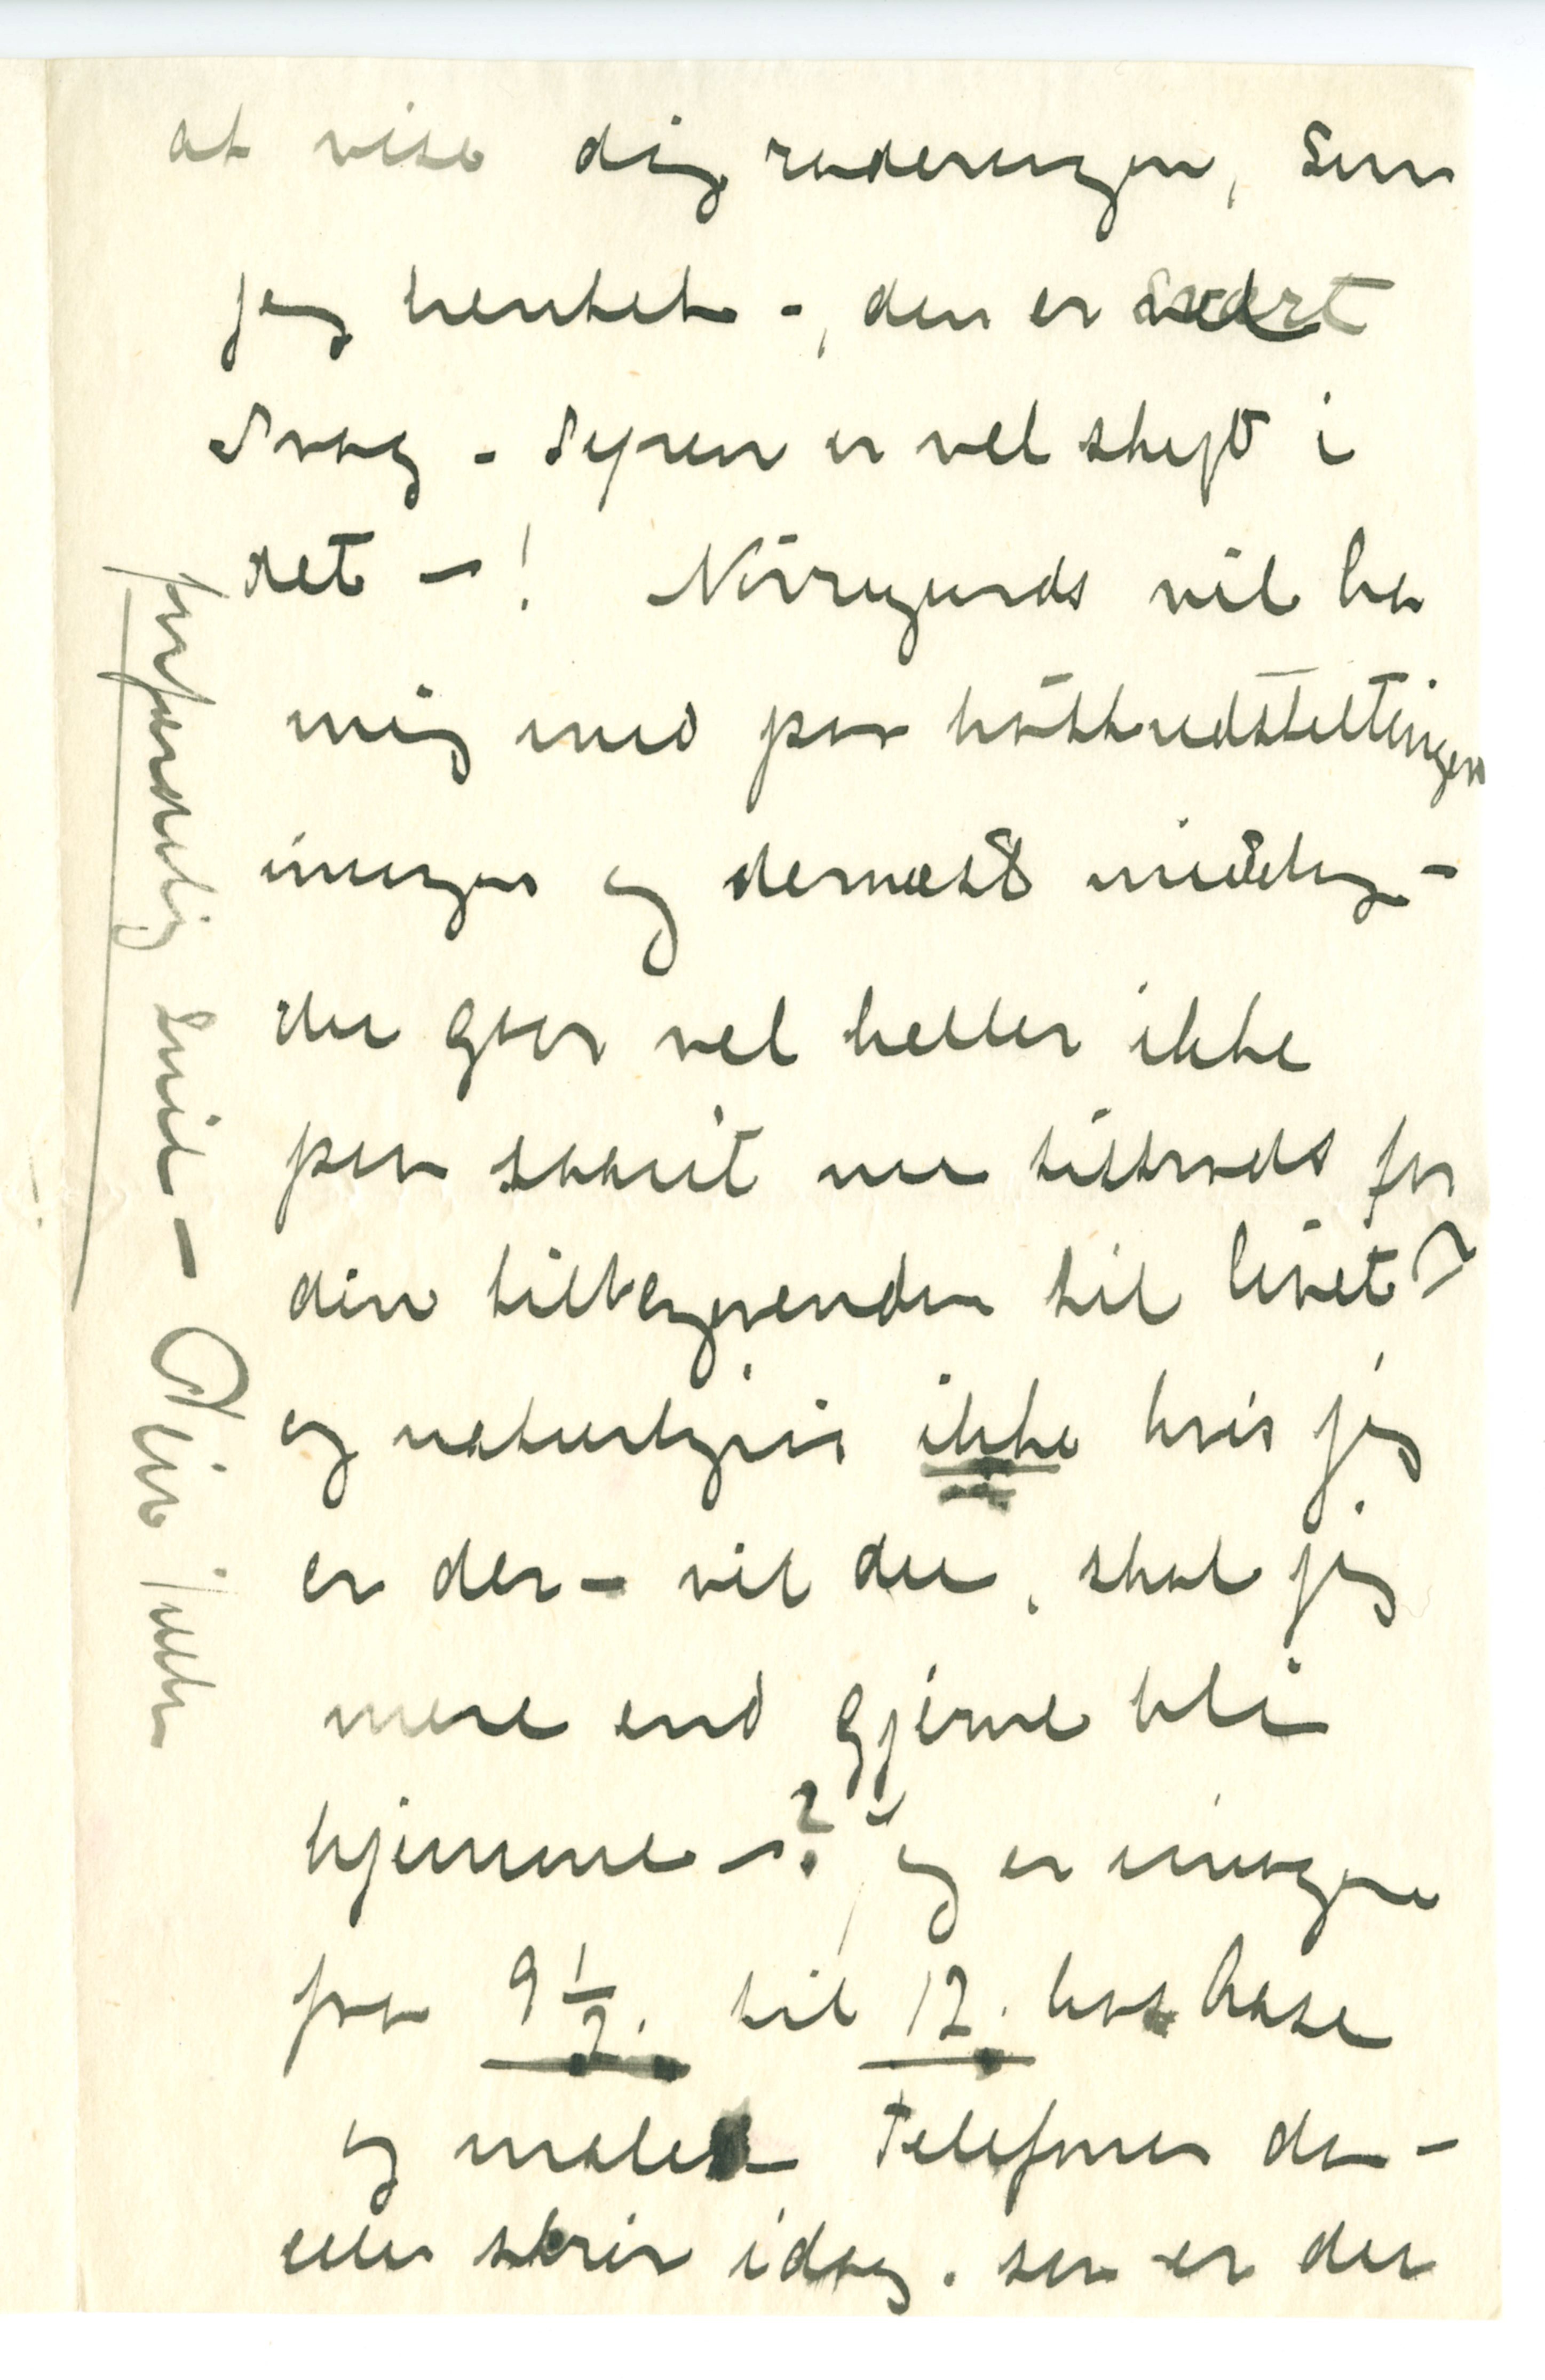 at vise dig raderingen, som
jeg hentet -, den er svært
svag - syren er vel sluppet i
det - ! Nørregaards vil ha
mig med paa høstudstillingen
imorgen og dernæst middag -
du gaar vel heller ikke
paa saant nu tiltrods for
din tilbagevenden til livet?
og naturligvis ikke hvis jeg
er der - vil du, skal jeg
mere end gjerne bli
hjemme - ? og er imorgen
fra 9 1/2. til 12. hos Aase
og maler Telefoner da -
eller skriv idag. saa er du
forfærdelig snil - Din